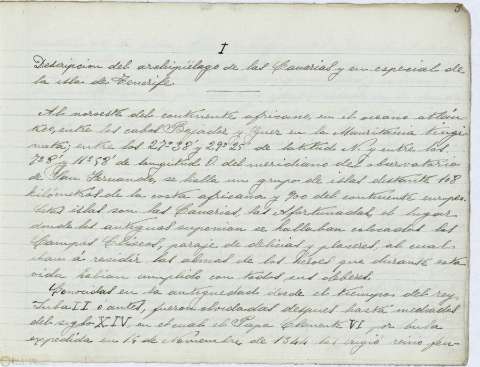 I
Descripcion del archipiélago de las Canarias y en especial de
la isla de Tenerife
Al noroeste del continente africano, en el oceano atlán
tico, entre los cabos Bojador y Guer en la Mauritania tingi
nata, entre los 27º38' y 29º25' de latitud N. y entre los
7º8' y 11º58' de longitud O. del meridiano del observatorio
de San Fernando, se halla un grupo de islas distante 108
kilómetros de la costa africana y 900 del continente europeo.
Estas islas son las Canarias, las Afortunadas, el lugar
donde los antiguos suponian se hallaban colocados los
Campus Eliseos, paraje de delicias y placeres, al cual
iban á residir las almas de los héroes que durante esta
vida habian cumplido con todos sus deberes.
Conocidas en la antiguedad desde el tiempo del rey
Juba II ó antes, fueron olvidadas despues hasta mediados
del siglo XIV en el cual el Papa Clemente VI por bula
expedida en 15 de Noviembre de 1344 las erigió reino feu-